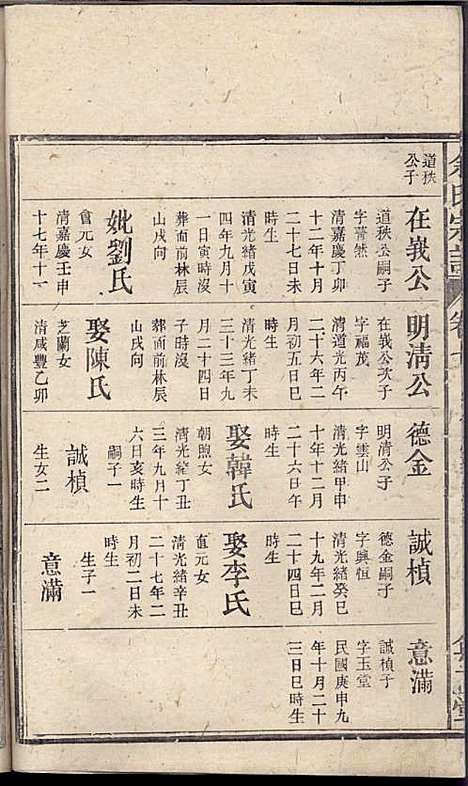 道秩
公子
在峩公
道秩公嗣子
字菁然
清嘉慶丁卯
十二年十月
二十七日未
時生
清光緒戊寅
四年九月十
一日寅時沒
葬面前林辰
山戌向
妣劉氏
會元女
清嘉慶壬申
十七年十一
明清公
在峩公次子
字福茂
清道光丙午
二十六年二
月初五日巳
時生
清光緒丁未
三十三年九
月二十四日
子時沒
葬面前林辰
山戌向
娶陳氏
芝蘭女
清咸豐乙卯
德金
明清公子
字雲山
清光緒甲申
十年十二月
二十六日午
時生
娶韓氏
朝煦女
清光緒丁丑
三年九月十
六日亥時生
嗣子一
誠楨
生女二
誠楨
德金嗣子
字興恒
清光緒癸巳
十九年二月
二十四日巳
時生
娶李氏
值元女
清光緒辛丑
二十七年二
月初二日未
時生
生子一
意滿
意滿
誠楨子
字玉堂
民國庚申九
年十月二十
三日巳時生